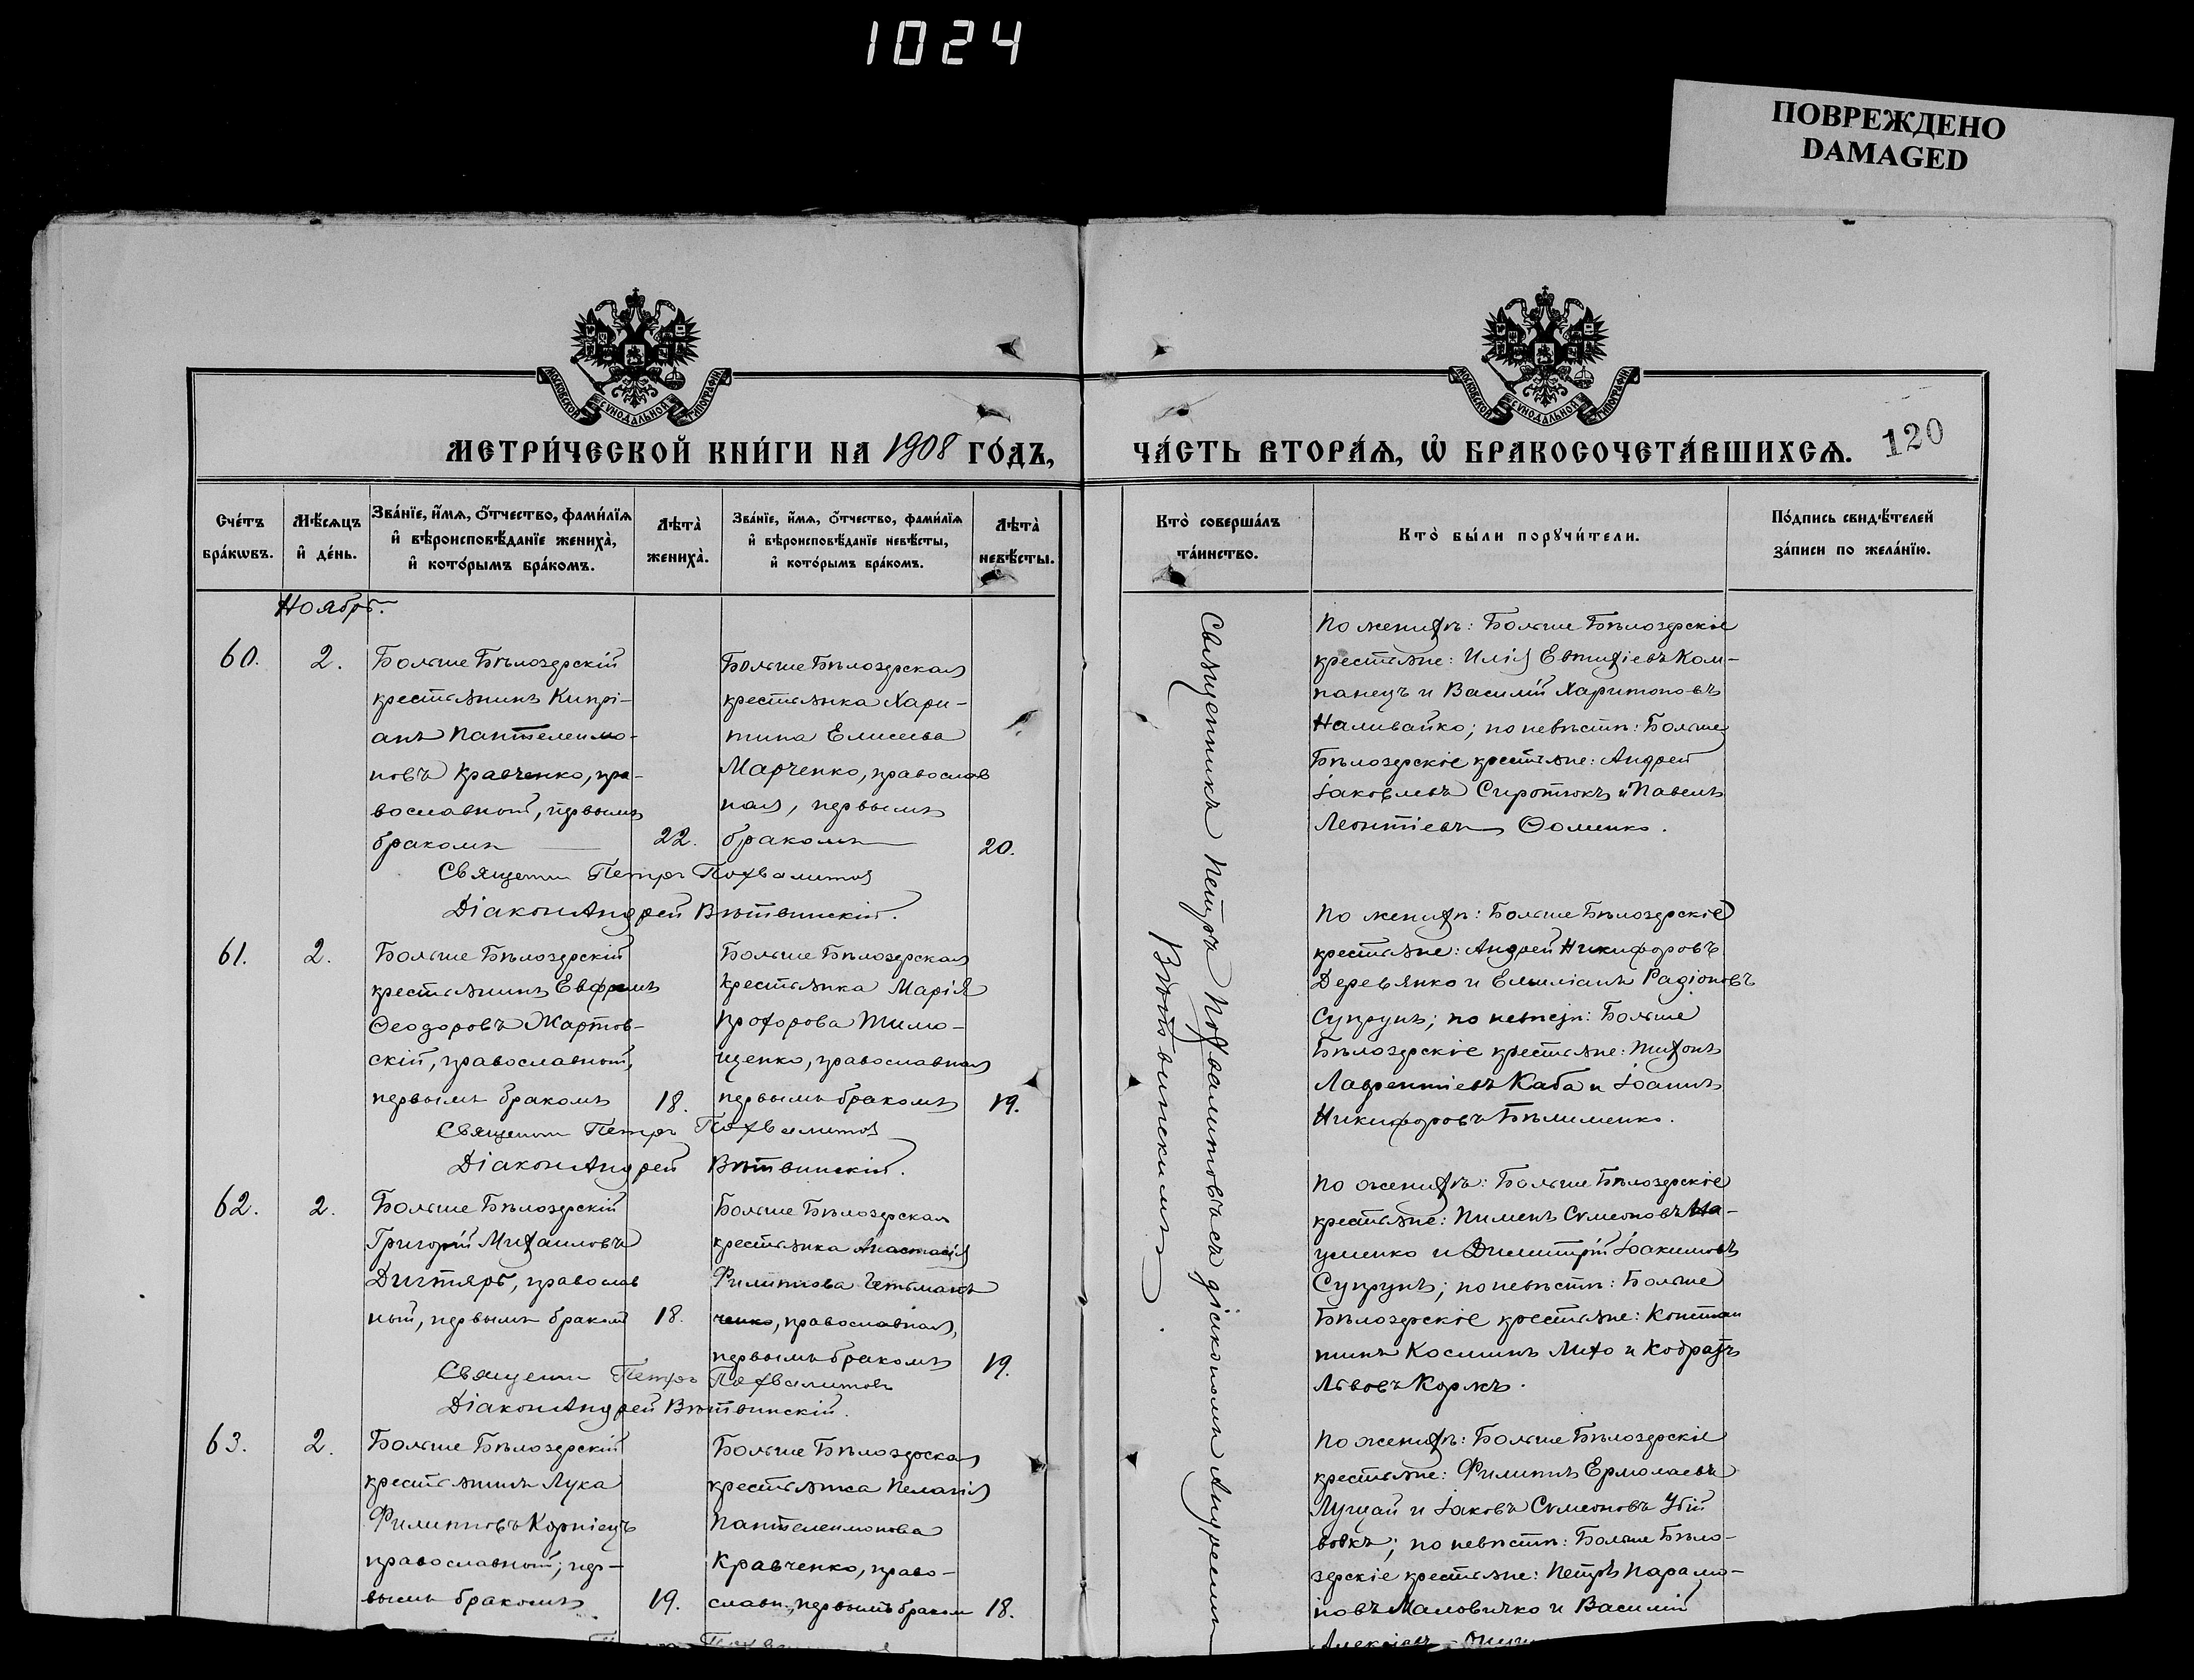 1024
ПОВРЕЖДЕНО
DAMAGED
МОСКОВСКОЙ СѴНОДАЛЬНОЙ ТИПОГРАФІИ
МОСКОВСКОЙ СѴНОДАЛЬНОЙ ТИПОГРАФІИ
МЕТРИ́ЧЕСКОЙ КНИ́ГИ НА 1908 ГО́ДЪ,
ЧА́СТЬ ВТОРА́Ѧ, Ѽ БРАКОСОЧЕТА́ВШИХСѦ.
120
Сче́тъ
бра́кѡвъ.
Мѣ́сѧцъ
и҆ де́нь.
Зва́нїе, и҆́мѧ, ѻ҆́тчество, фами́лїѧ
и҆ вѣроисповѣ́данїе жениха̀,
и҆ кото́рымъ бра́комъ.
Лѣта̀
жениха̀.
Зва́нїе, и҆́мѧ, ѻ҆́тчество, фами́лїѧ
и҆ вѣроисповѣ́данїе невѣ́сты,
и҆ кото́рымъ бра́комъ.
Лѣта̀
невѣ́сты.
Кто̀ соверша́лъ
та́инство.
Кто̀ бы́ли порꙋчи́тели.
По́дпись свидѣ́телей
за́писи по жела́нїю.
Ноябрь.
60.
2.
Больше Бѣлозерскій
крестьянинъ Кипрі-
анъ Пантелеимо-
новъ Кравченко, пра-
вославный, первымъ
бракомъ
22.
Больше Бѣлозерская
крестьянка Хари-
тина Елисеева
Марченко, православ
ная, первымъ
бракомъ
20.
Священн Петръ Похвалитовъ
Діаконъ Андрей Вѣтвинскій.
61.
2.
Больше Бѣлозерскій
крестьянинъ Евфремъ
Ѳеодоровъ Жартов-
скій, православный,
первымъ бракомъ
18.
Больше Бѣлозерская
крестьянка Марія
Прохорова Тимо-
щенко, православная
первымъ бракомъ
19.
Священн Петръ Похвалитовъ
Діаконъ Андрей Вѣтвинскій.
62.
2.
Больше Бѣлозерскій
Григорій Михаиловъ
Дигтярь, православ
ный, первымъ браком
18.
Больше Бѣлозерская
крестьянка Анастасія
Филиппова Гетьман
ченко, православная,
первымъ бракомъ
19.
Священн Петръ Похвалитовъ
Діаконъ Андрей Вѣтвинскій.
63.
2.
Больше Бѣлозерскій
крестьянинъ Лука
Филипповъ Корніецъ
православный, пер-
вымъ бракомъ
19.
Больше Бѣлозерская
крестьянка Пелагія
Пантелеимонова
Кравченко, право-
славн., первымъ браком
18.
Священникъ Петръ Похвалитовъ съ діакономъ Андреемъ
Вѣтвинскимъ.
По женихѣ: Больше Бѣлозерскіе
крестьяне: Илія Евтихіевъ Ком-
панецъ и Василій Харитоновъ
Наливайко; по невѣстѣ: Больше
Бѣлозерскіе крестьяне: Андрей
Іаковлевъ Сиротюкъ и Павелъ
Леонтіевъ Ѳоменко.
По женихѣ: Больше Бѣлозерскіе
крестьяне: Андрей Никифоровъ
Деревянко и Емиліанъ Радіоновъ
Супрунъ; по невѣстѣ: Больше
Бѣлозерскіе крестьяне: Тихонъ
Лаврентіевъ Каба и Іоаннъ
Никифоровъ Бѣлименко.
По женихѣ: Больше Бѣлозерскіе
крестьяне: Пименъ Сѵмеоновъ На-
уменко и Димитрій Іоакимовъ
Супрунъ; по невѣстѣ: Больше
Бѣлозерскіе крестьяне: Констан
тинъ Косминъ Михо и Кодратъ
Львовъ Коржъ.
По женихѣ: Больше Бѣлозерскіе
крестьяне: Филиппъ Ермолаевъ
Лущай и Іаковъ Сѵмеоновъ Убій
вовкъ; по невѣстѣ: Больше Бѣло-
зерскіе крестьяне: Петръ Парамо-
новъ Маловичко и Василій
Алексіевъ